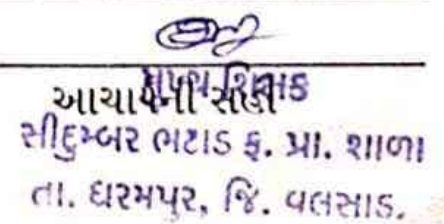 મુખ્ય શિક્ષક
આચાર્યની સહી
સીદુમ્બર ભટાડ ફ. પ્રા. શાળા
તા. ધરમપુર, જિ. વલસાડ.